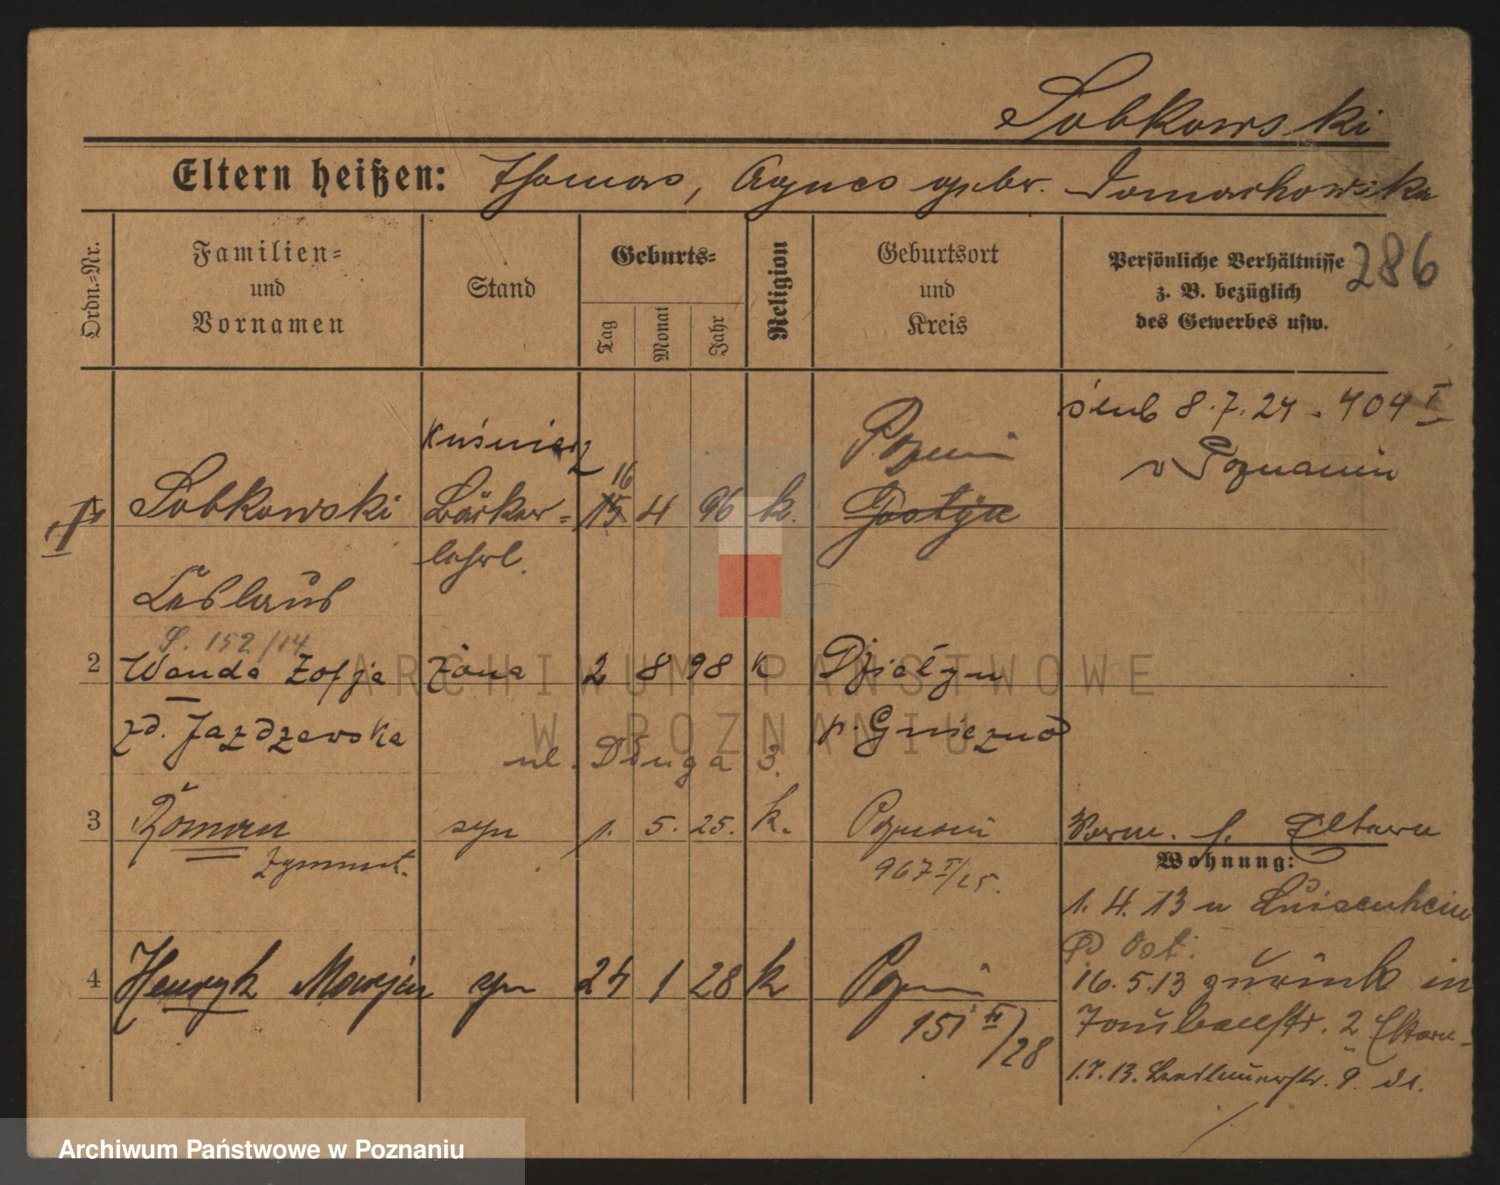 Sobkowski
Eltern heißen: Thomas, Agnes geb. Tomachowska
Ordn.-Nr.
Familien- und Vornamen
Stand
Geburts-
Tag
Monat
Jahr
Religion
Geburtsort und Kreis
Persönliche Verhältnisse z. B. bezüglich des Gewerbes usw.
286
ślub 8.7.24 - 404 I
w Poznaniu
kuśnierz
16
Poznań
Sobkowski
Bäcker-
15 4 96 k.
Gostyń
lehrl.
Leslaus
S. 152/14
2 Wanda Zofja żona 2 8 98 k
zd. Jazdzewska p. Gniezno
ul. Długa 3.
3 Roman syn 1. 5. 25. k. Poznań
Zygmunt. 967 I/25.
4 Henryk Marjan syn 24 1 28 k Poznań
151 II/28
Eltern
Wohnung:
1. 4. 13 n Luisenhein
Ost.
16.5.13 zurück in
2 Eltern
1.7.13. 9. ds.
ARCHIWUM PAŃSTWOWE
W POZNANIU
Archiwum Państwowe w Poznaniu